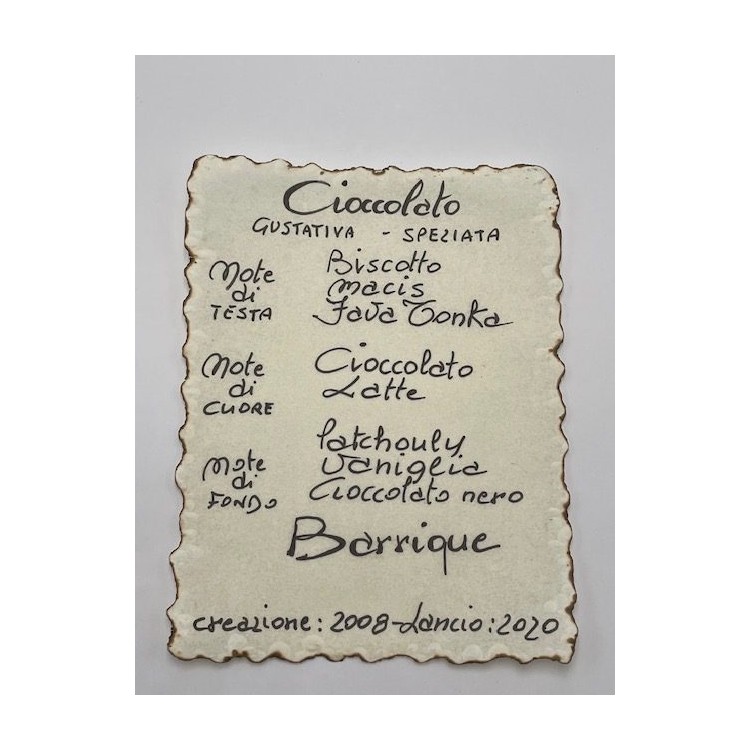 Cioccolato
GUSTATIVA - SPEZIATA
Note
di
TESTA
Biscotto
macis
Fava Tonka
Note
di
CUORE
Cioccolato
Latte
Note
di
FONDO
Patchouly
Vaniglia
Cioccolato nero
Barrique
creazione: 2008-Lancio: 2020